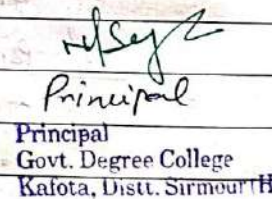 Principal
Principal
Govt. Degree College
Kafota, Distt. Sirmour (H